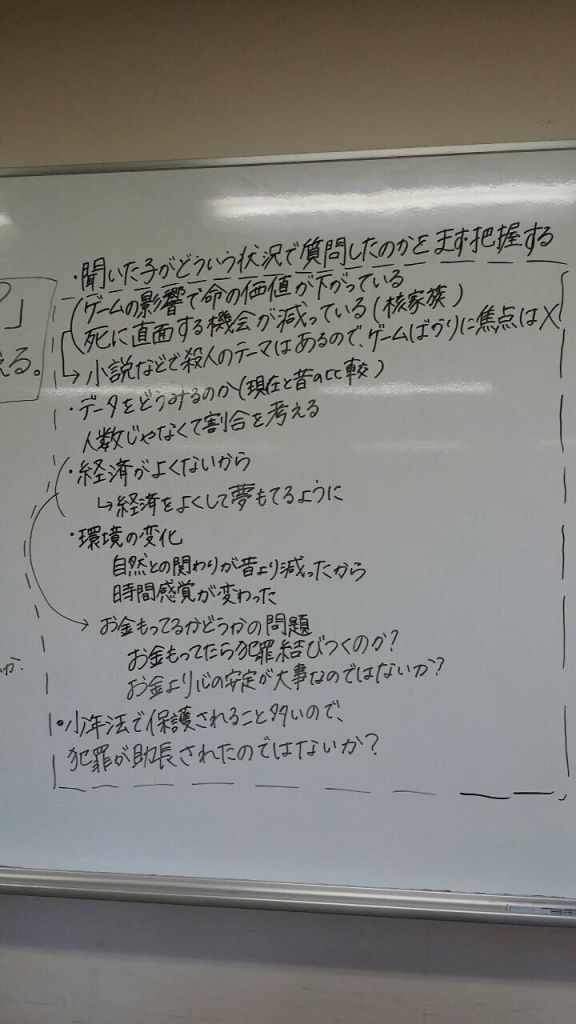 」
える。
か.
・聞いた子がどういう状況で質問したのかをまず把握する
ゲームの影響で命の価値が下がっている
死に直面する機会が減っている(核家族)
→小説などで殺人のテーマはあるので、ゲームばかりに焦点は×
・データをどうみるのか(現在と昔の比較)
人数じゃなくて割合を考える
・経済がよくないから
↳経済をよくして夢もてるように
・環境の変化
自然との関わりが昔より減ったから
時間感覚が変わった
→お金もってるかどうかの問題
お金もってたら犯罪結びつくのか?
お金より心の安定が大事なのではないか?
・少年法で保護されること多いので、
犯罪が助長されたのではないか?